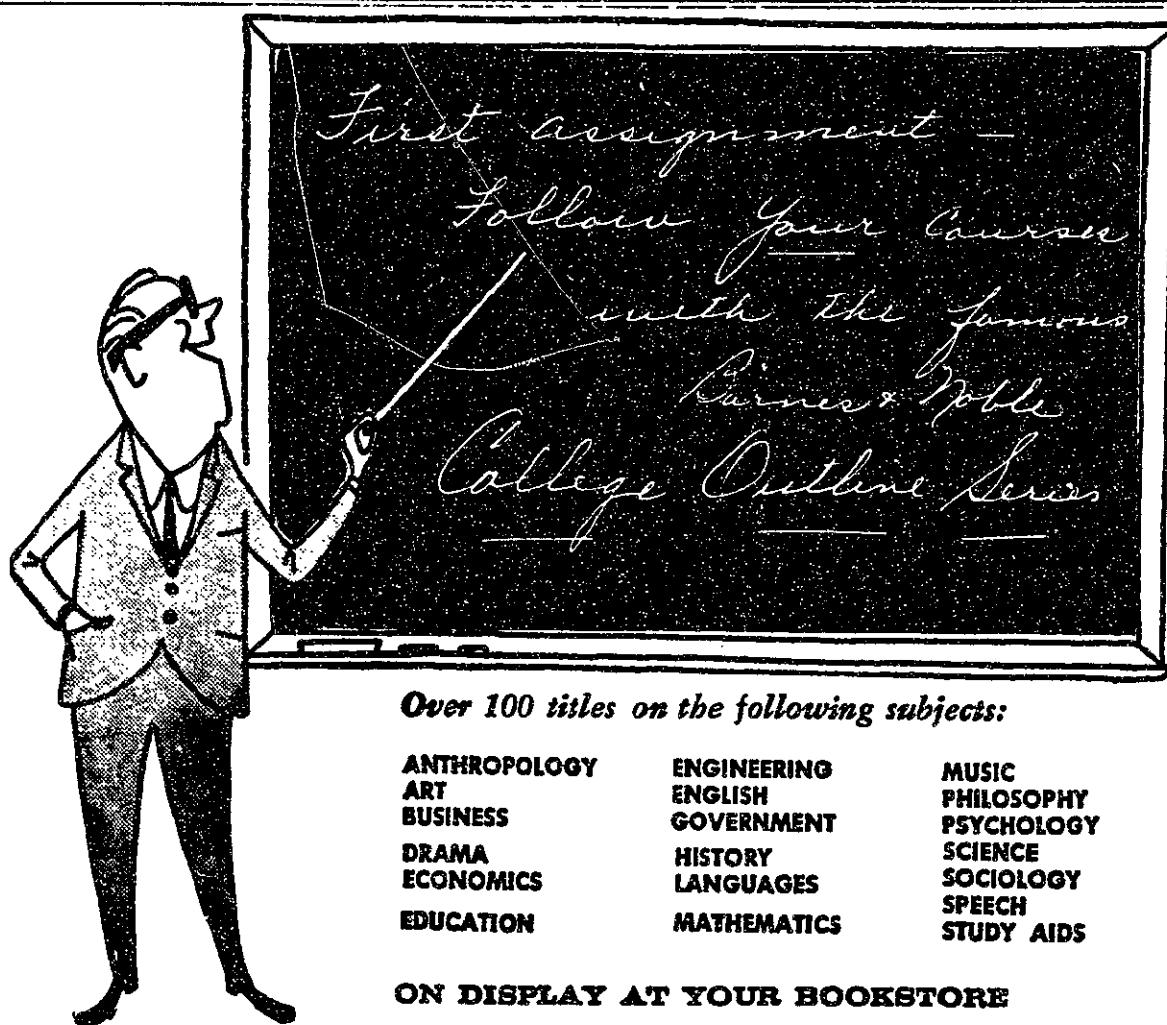 First assignment —
Follow your courses
with the famous
Barnes & Noble
College Outline Series
Over 100 titles on the following subjects:
ANTHROPOLOGY
ART
BUSINESS
DRAMA
ECONOMICS
EDUCATION
ENGINEERING
ENGLISH
GOVERNMENT
HISTORY
LANGUAGES
MATHEMATICS
MUSIC
PHILOSOPHY
PSYCHOLOGY
SCIENCE
SOCIOLOGY
SPEECH
STUDY AIDS
ON DISPLAY AT YOUR BOOKSTORE